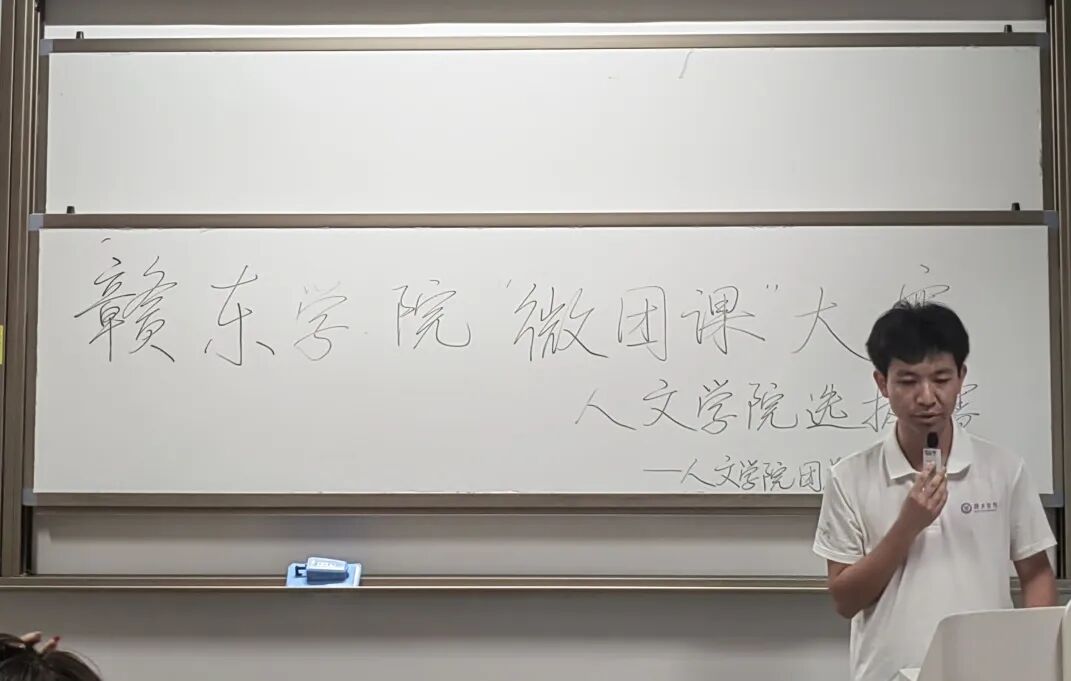 赣东学院“微团课”大赛
人文学院选拔赛
—人文学院团